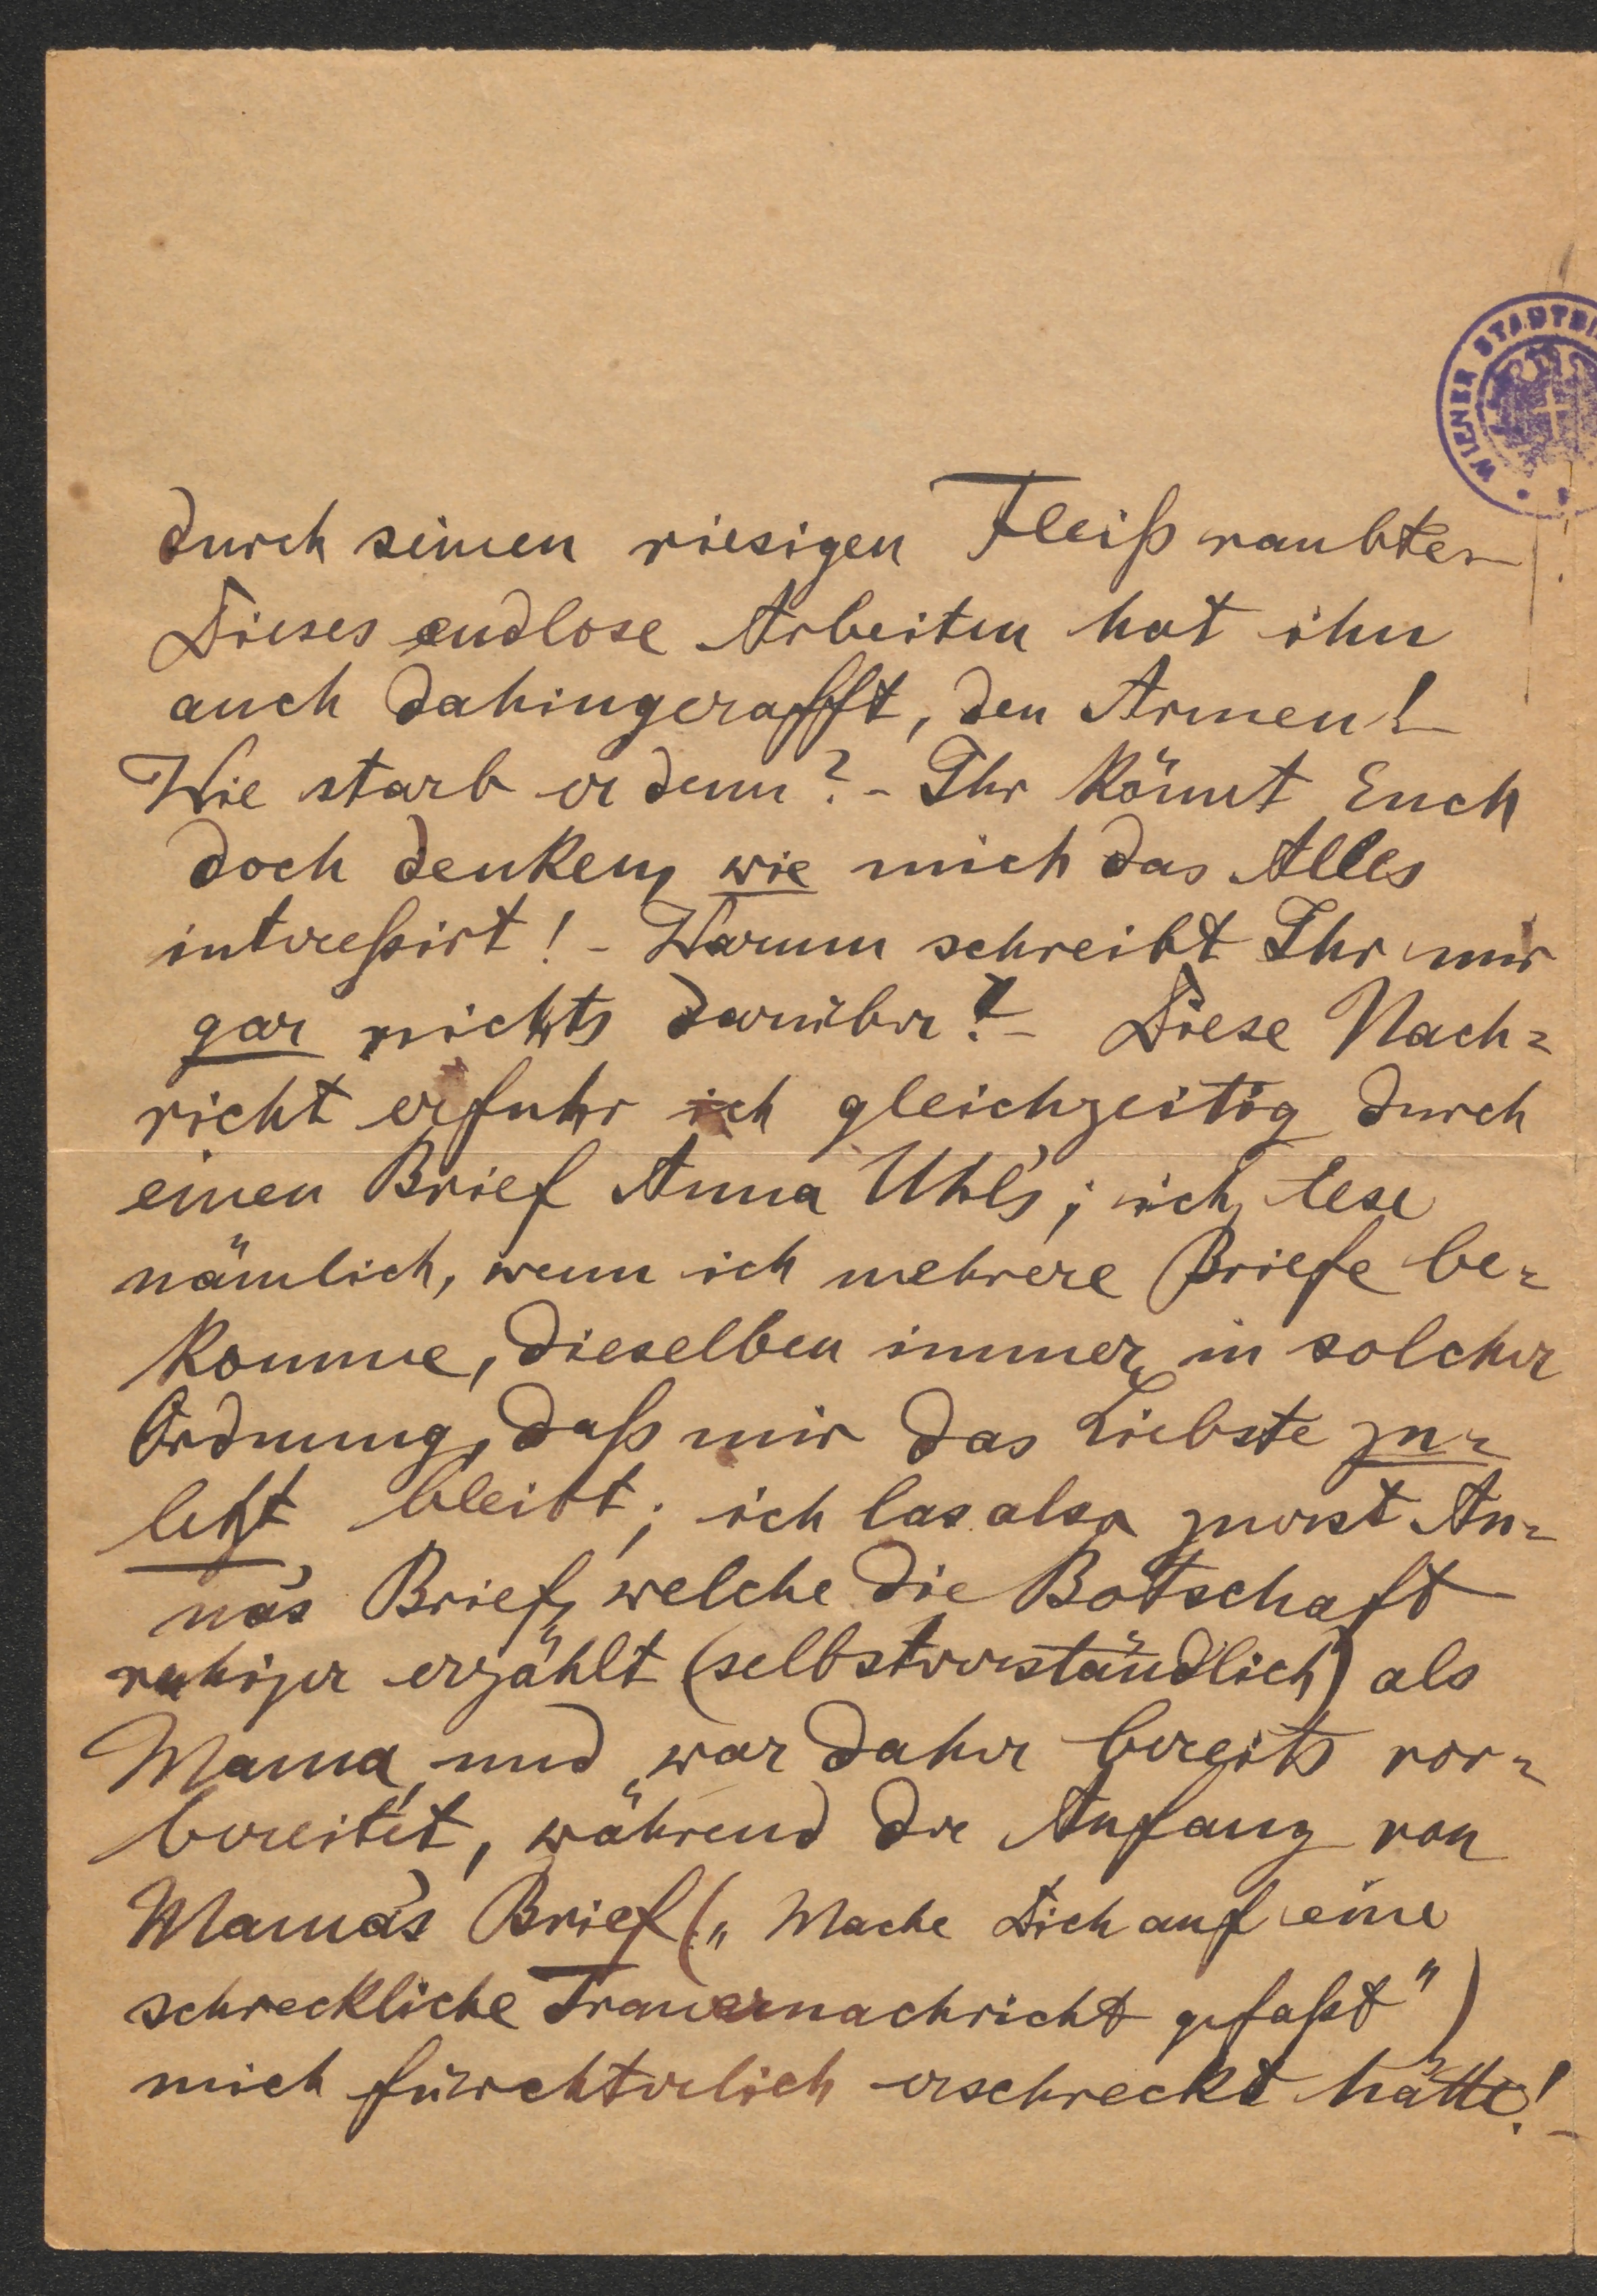 WIENER STADTBI
durch seinen riesigen Fleiß raubte.–
Dieses endlose Arbeiten hat ihn
auch dahingerafft, den Armen!–
Wie starb er denn?– Ihr könnt Euch
doch denken, wie mich das Alles
intereßirt!– Warum schreibt Ihr mir
gar nichts darüber?– Diese Nach=
richt erfuhr ich gleichzeitig durch
einen Brief Anna Uhl's; ich lese
nämlich, wenn ich mehrere Briefe be=
komme, dieselben immer in solcher
Ordnung, daß mir das Liebste zu=
letzt bleibt; ich las also zuerst An=
na's Brief, welche die Botschaft
ruhiger erzählt (selbstverständlich) als
Mama, und war daher bereits vor=
bereitet, während der Anfang von
Mama's Brief („Mache Dich auf eine
schreckliche Trauernachricht gefaßt")
mich fürchterlich erschreckt hätte!–